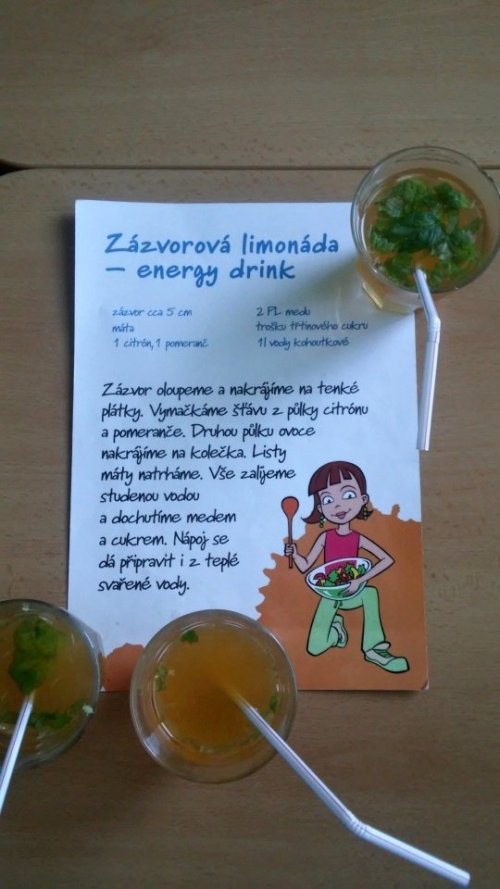 Zázvorová limonáda
– energy drink
zázvor cca 5 cm
máta
1 citrón, 1 pomeranč
2 PL medu
trošku třtinového cukru
1l vody kohoutkové
Zázvor oloupeme a nakrájíme na tenké
plátky. Vymačkáme šťávu z půlky citrónu
a pomeranče. Druhou půlku ovoce
nakrájíme na kolečka. Listy
máty natrháme. Vše zalijeme
studenou vodou
a dochutíme medem
a cukrem. Nápoj se
dá připravit i z teplé
svařené vody.